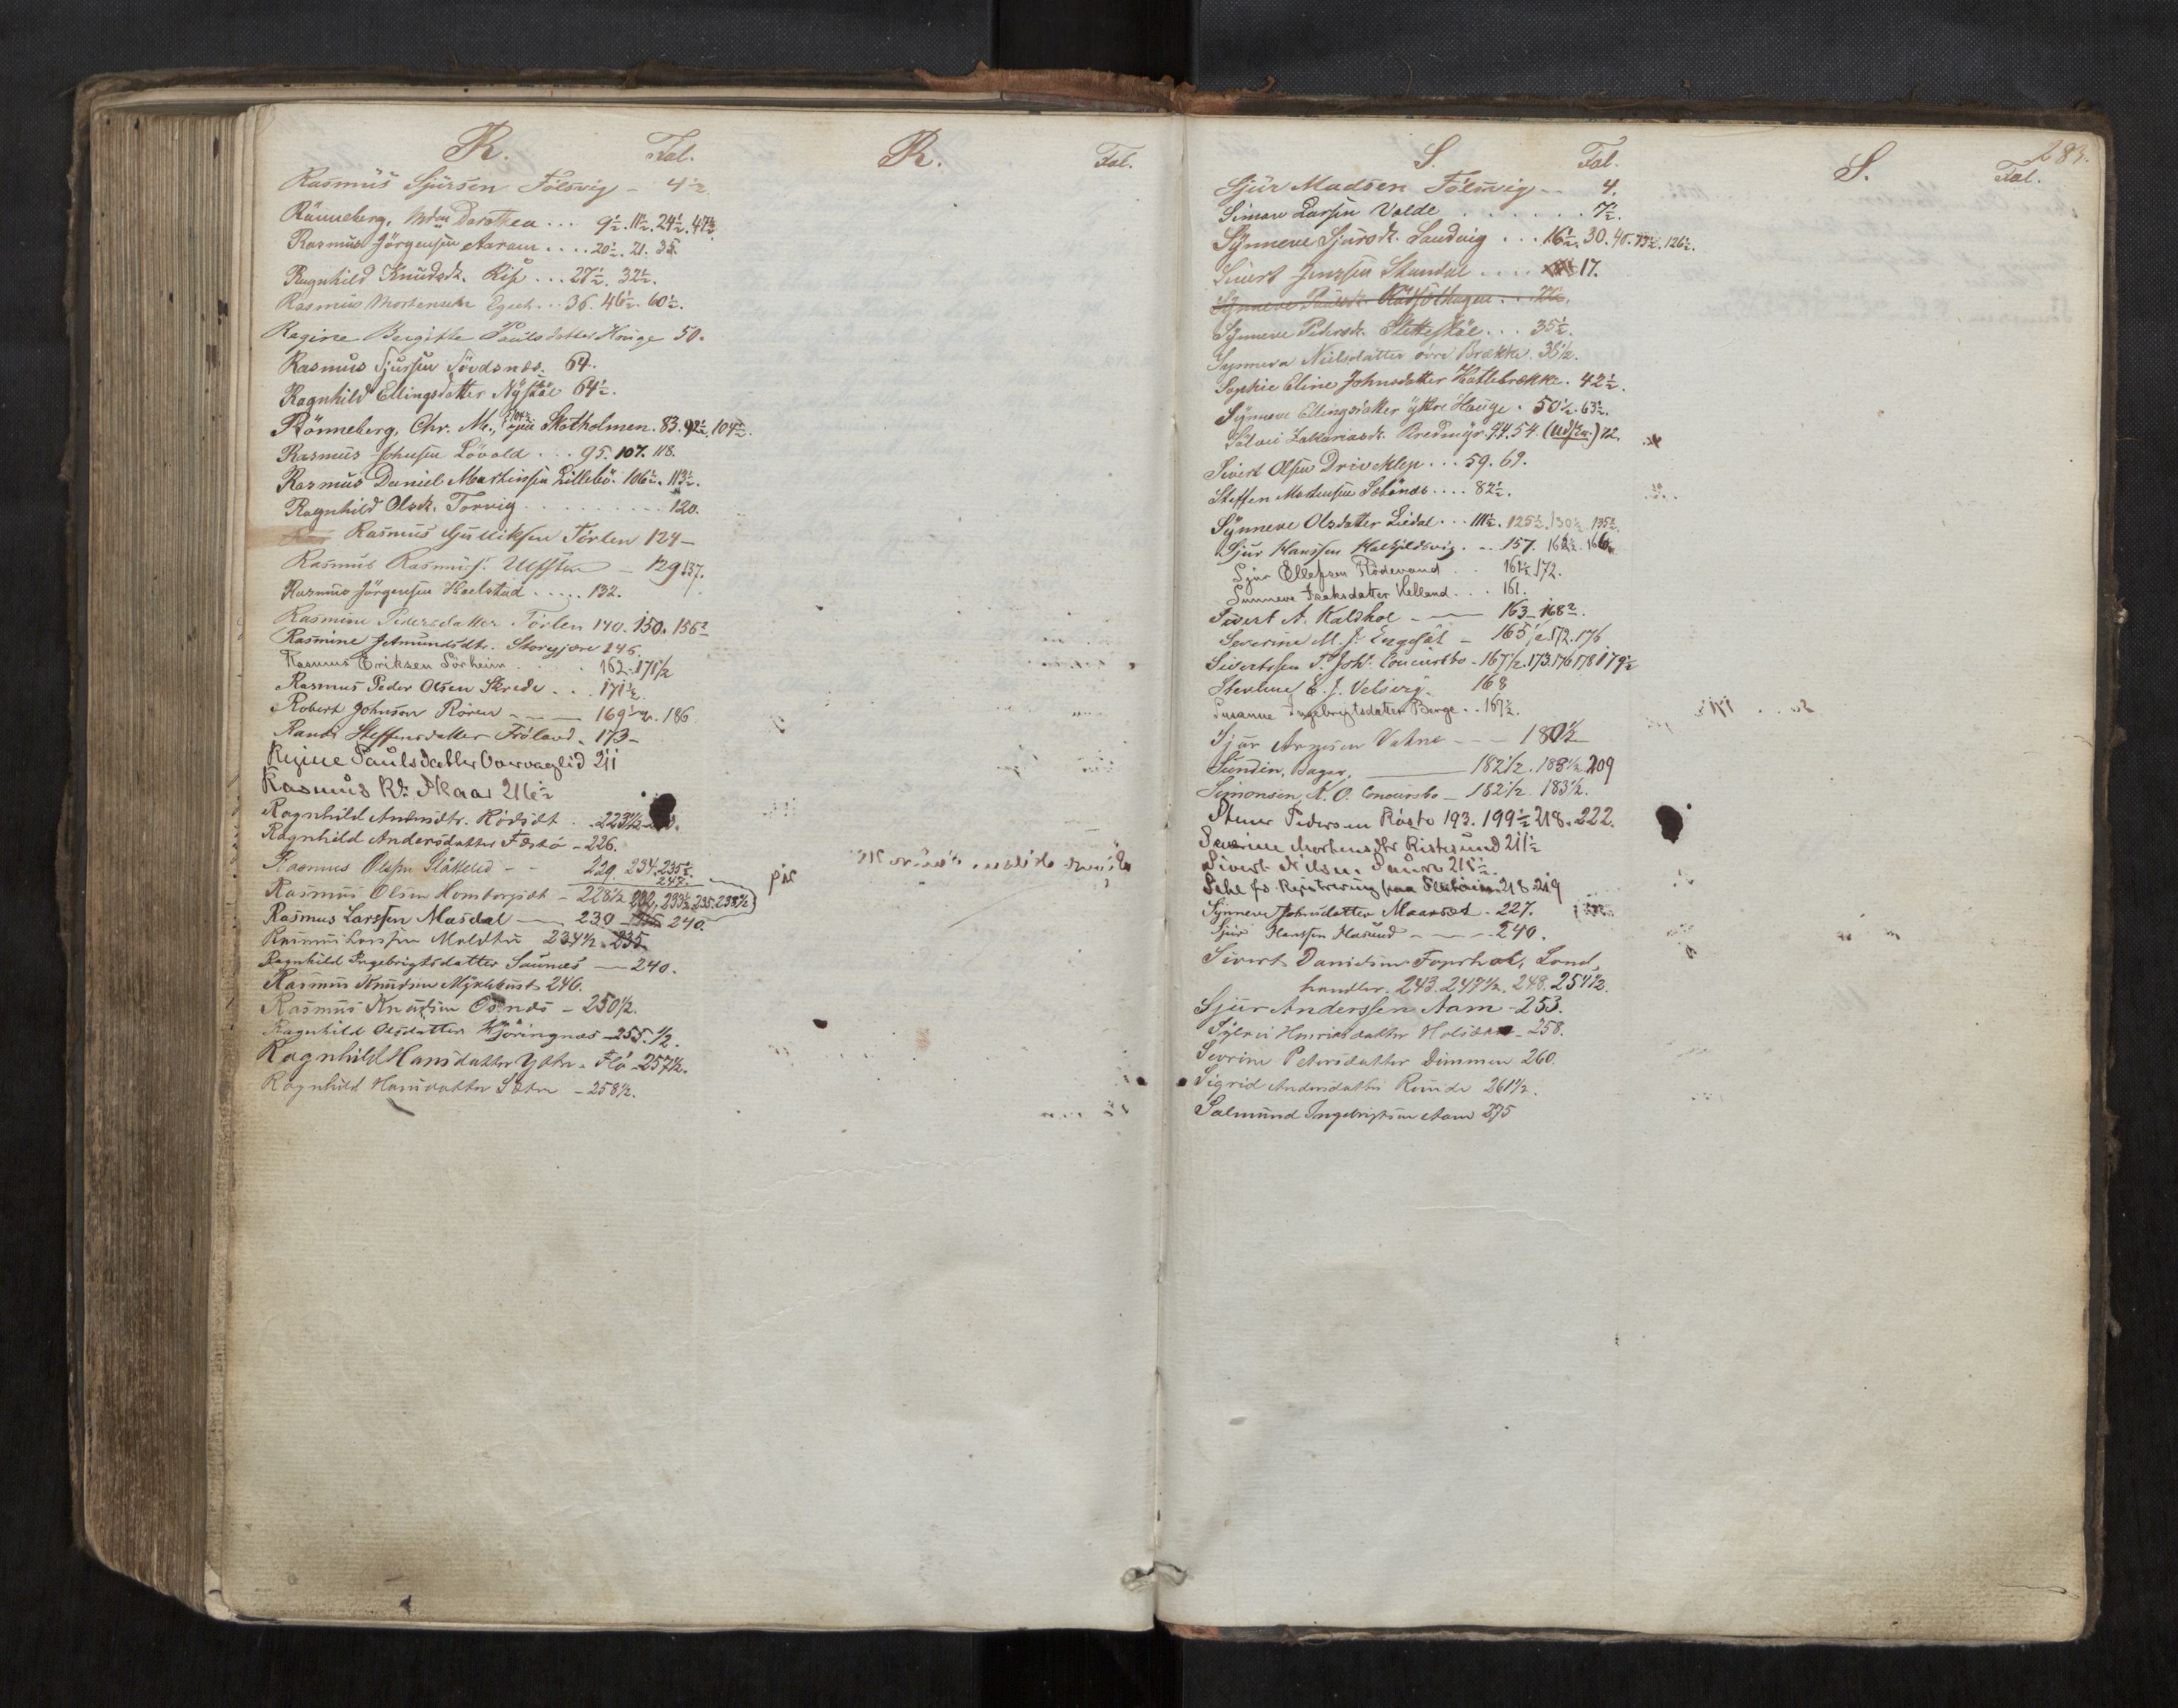 R. Fol. R. Fol.
Rasmus Sjursen Fölsvig - 4½
Rönneberg, Mdm Dorothea ... 9½. 11½. 24½. 47½.
Rasmus Jörgensen Aaram .... 20½. 21. 35.
Ragnhild Knudsdt. Riis ... 27½. 32½.
Rasmus Mortensen Egset .. 36. 46½. 60½.
Regine Bergitte Paulsdatter Houge 50.
Rasmus Sjursen Sördsnes. 64.
Ragnhild Ellingsdatter Nÿstöl 64½.
Rönneberg, Chr. M., Skotholmen. 83. 92½. 104½.
Rasmus Johnsen Lövold ... 95. 107. 118.
Rasmus Daniel Martinssen Lillebö. 106½. 113½.
Ragnhild Olsdt. Torvig ......... 120.
Rasmus Gulliksen Förlen 124-
Rasmus Rasmuss. Ulfsten - 129 137.
Rasmus Jörgensen Haelstad ..... 132.
Rasmine Pedersdatter Torlen 140. 150. 156½
Rasmine Amundsdtr. Storgjære 146.
Rasmus Eriksen Sörheim . . . 162. 171½
Rasmus Peder Olsen Skrede . . . 171½.
Robert Johnson Rören - - — 169½. 186
Randi Steffensdatter Fröland. 173-
Regine Paulsdatter Overvaglid 211
Rasmus Rs. Skaar 216½
Ragnhild Amundsdtr. Rödsæt . . 223½
Ragnhild Andersdatter Festö - 226.
Rasmus Olsen Slåkelid - - 229. 234. 235½.
247.
Rasmus Olsen Homborgsæt - 228½ 232, 233½. 235. 238½
Rasmus Larssen Masdal — 230 240.
Rasmus Larssen Moldtu 234½. 235.
Ragnhild Ingebrigtsdatter Saunes — 240.
Rasmus Knudsen Mÿklebust 246.
Rasmus Knudsen Osnes - 250½.
Ragnhild Olsdatter Kjöringnæs - 255.½.
Ragnhild Hansdatter Ytre - Flö - 257½.
Ragnhild Hansdatter Sætre - 258½.
283.
S. Fol. S. Fol.
Sjur Madsen Fölsvig - - 4.
Simon Larsen Valde . . . . . . 7½.
Sÿnneve Sjursdt. Landvig . . . 16½. 30. 40. 73½. 126½.
Sivert Jenssen Standal . . . . 17.
Sÿnneve Pedersdt. Slettestöl . . . 35½.
Synneva Nielsdatter övre Brække. 38½.
Sophie Eline Johnsdatter Hatlebrække. 42½.
Sÿnneve Ellingsdatter ÿttre Hauge. 50½. 63½.
Solvei Zakariasdt. Bredmyr. 44. 54. (Udskr.) 72.
Sivert Olsen Driveklep . . . 59. 69.
Steffen Mortensen Sæbönes . . . . 82½.
Sÿnneve Olsdatter Liedal . . . 111½. 125½. 130½. 135½.
Sjur Hanssen Halkjeldsvig. . . 157. 162½. 166.
Sjur Ellefsen Rödevand . . 161½. 172.
Sunneva Isaksdatter Helland . . . 161.
Sivert A. Kaldhol - — 163. 168½.
Severine M. J. Engesæt - 165½. 172. 176
Sivertssen P. Joh. Concursbo - 167½. 173. 176. 178. 179½
Stevline E. J. Velsvig. 168
Susanne Ingebrigtsdatter Berge . . 169½.
Sjur Arnesen Vatne - - — 180½
Sundin, Bager, — 182½. 183½. 209
Simonsen, K. O. Concursbo - 182½ 183½.
Steur Pedersen Råstö 193. 199½ 218. 222.
Severine Mortensdtr Ristesund 211½
Sivert Nilsen, Saure 216½.
Sehl fs. Registrering paa Sletteim 218. 219
Sÿnneve Johnsdatter Maarsæt. 227.
Sjur Hanssen Hasund - - - 240.
Sivert Danielsen Fagerhol, Land,
handler. 243. 247½. 248. 254½.
Sjur Anderssen Aam - 253.
Sylvei Henriksdatter Holsæter - 258.
Sevrine Petersdatter Dimmen 260.
Sigrid Andersdatter Runde 261½.
Salmund Ingebrigtsen Aam 275